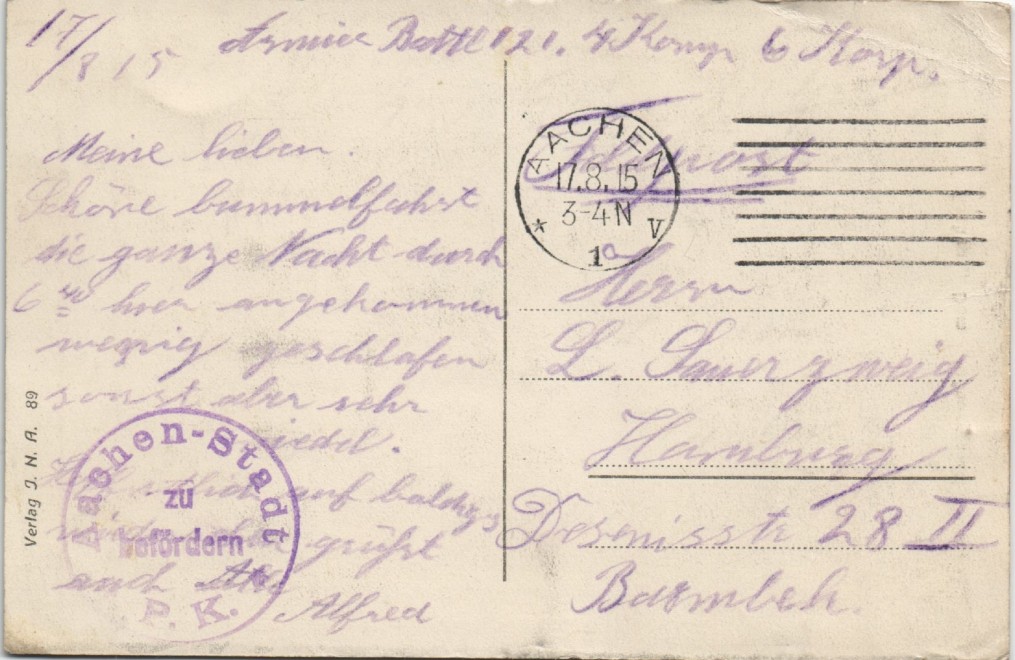 17/8 15
Armier Battl 121. 4 Komp 6 Korp.
Meine lieben.
Schöne bummelfahrt
die ganze Nacht durch
6 hier angekommen
wenig geschlafen
sonst aber sehr
fidel.
auf baldiges
grüßt
euch Alle
Alfred
Feldpost
AACHEN
17.8.15
3-4 N
* 1a V
Herrn
L. Sauerzweig
Hamburg
Desenisstr 28 II
Barmbek.
Aachen-Stadt
zu
befördern
P. K.
Verlag J. N. A. 89